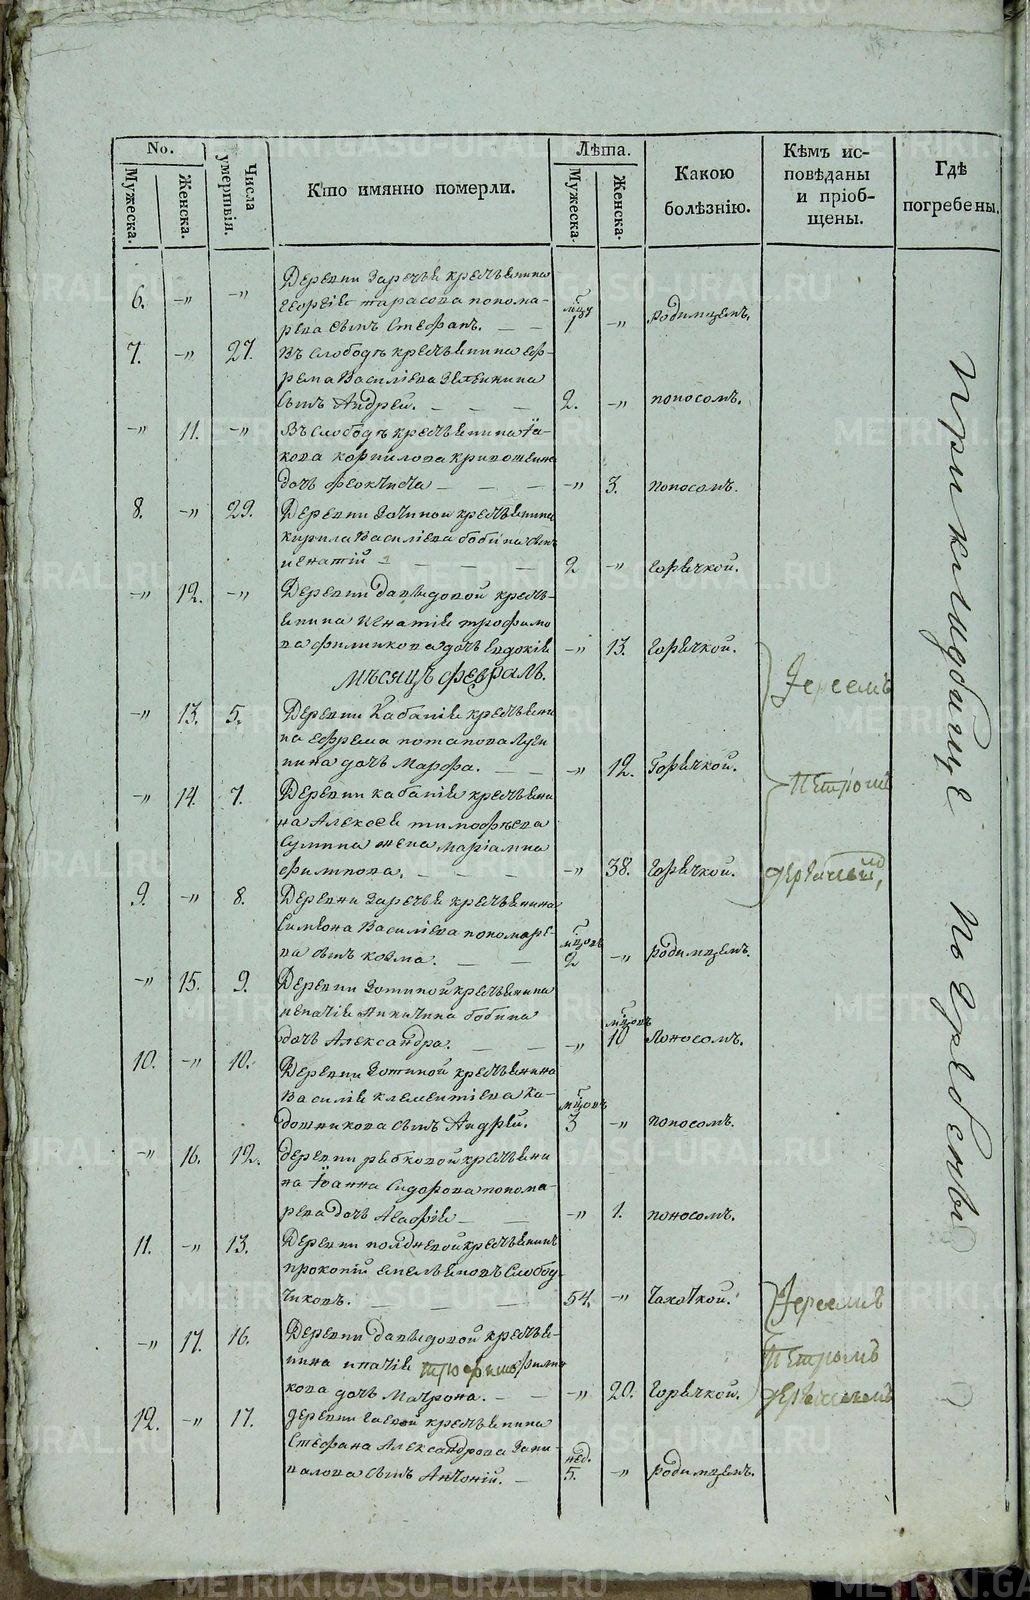 No.
Мужеска.
Женска.
Числа умертвія.
Кто имянно померли.
Лѣта.
Мужеска.
Женска.
Какою болѣзнію.
Кѣмъ ис-
повѣданы
и пріоб-
щены.
Гдѣ погребены.
6. -" -" Деревни Заречья крестьянина
Георгія Тарасова понома-
рева сынъ Стефанъ. 1 -" родимцемъ.
7. -" 27. Въ Слободѣ крестьянина Еф-
рема Василіева
сынъ Андрей. 2. -" поносомъ.
-" 11. -" Въ Слободѣ крестьянина Іа-
кова Корнилова Кривошеина
дочь Феоктиста -" 3. поносомъ.
8. -" 29. Деревни крестьянина
Кирила Василіева Бобина сынъ
Игнатій 2 -" горячкой.
-" 12. -" Деревни Давыдовой кресть-
янина Игнатія Трофимо
ва Филинкова дочь Евдокія -" 13. горячкой.
Мѣсяцъ февраль.
-" 13. 5. Деревни Кабанія крестьяни
на Ефрема Потапова
дочь Марфа. -" 12. Горячкой.
-" 14. 7. Деревни Кабанія крестьяни
на Алексея Тимофѣева
жена Маріамна
Филипова. -" 38. Горячкой.
Іереемъ
Петромъ
9. -" 8. Деревни Заречья крестьянина
Симеона Василіева Пономаре-
ва сынъ Козма. мцовъ 2 -" родимцемъ.
-" 15. 9. Деревни Зотиной крестьянина
Никитина Бобина
дочь Александра. -" мцовъ 10 Поносомъ.
10. -" 10. Деревни Зотиной крестьянина
Василія Клементіева Ка-
дошникова сынъ Андрей. мцовъ 3 -" поносомъ.
-" 16. 12. Деревни Рябковой крестьяни
на Іоанна Сидорова Понома-
рева дочь Агафія -" 1. поносомъ.
11. -" 13. Деревни Полдневой крестьянинъ
Прокопій Емельяновъ Слобод-
чиковъ. 54. -" Чахоткой.
-" 17. 16. Деревни Давыдовой крестья-
нина Трофимо Филин
кова дочь Матрона. -" 20. Горячкой.
Іереемъ
Петромъ
12. -" 17. Деревни крестьянина
Стефана Александрова Запи-
валова сынъ Антоній. нед. 5. -" родимцемъ.
При кладбище погребены
METRIKI.GASO-URAL.RU